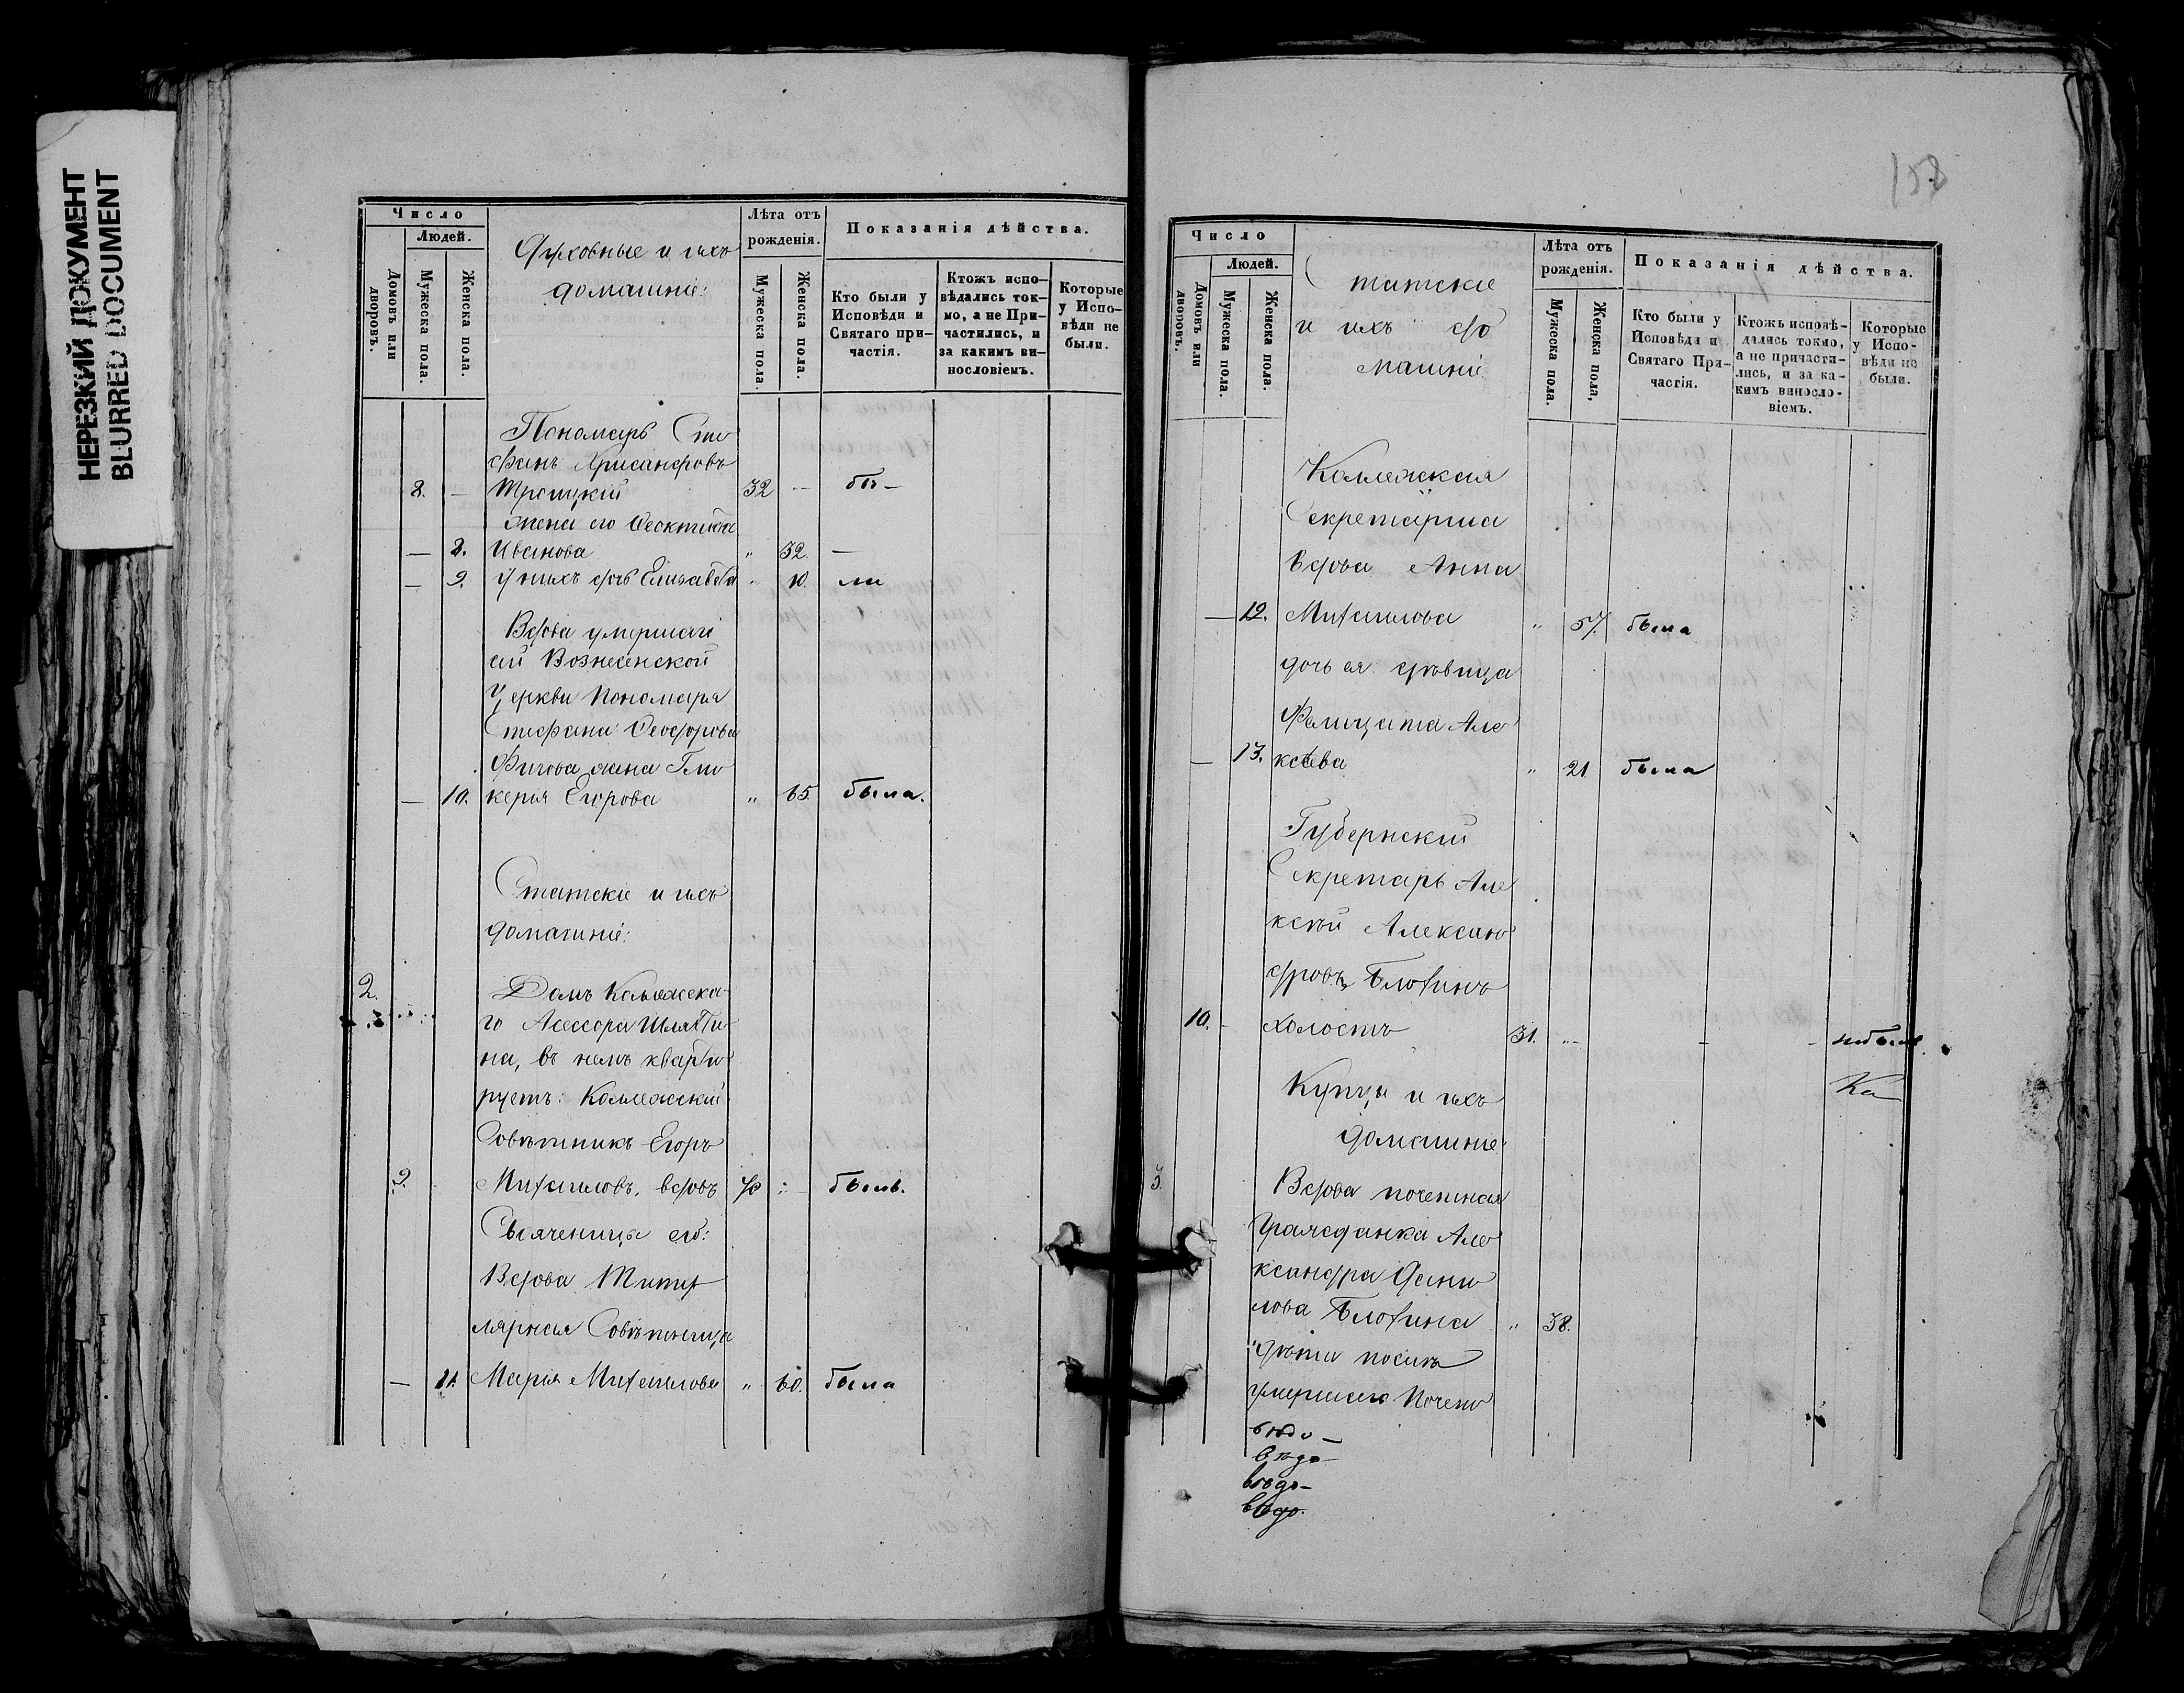 НЕРЕЗКИЙ ДОКУМЕНТ
BLURRED DOCUMENT
Число
Людей.
Домовъ или дворовъ.
Мужеска пола.
Женска пола.
Духовные и ихъ
домашніе:
Лѣта отъ
рожденія.
Мужеска пола.
Женска пола.
Показанія дѣйства.
Кто были у
Исповѣди и
Святаго при-
частія.
Ктожъ испо-
вѣдались ток-
мо, а не При-
частились, и
за какимъ ви-
нословіемъ.
Которые
у Испо-
вѣди не
были.
Пономарь Сте
фанъ Хрисанфовъ
8. — Троицкій 32 — бы—
жена его Феоктиста
— 8. Иванова " 32. —
— 9. у нихъ дочь Елизавета " 10. ли
Вдова умершаго
сей Вознесенской
Церкви Пономаря
Стефана Феодорова
жена Гли
— 10. керія Егорова " 65. была.
Статскіе и ихъ
домашніе:
2. Домъ Коллежска-
го Асессора Шляпки-
на, въ немъ кварти
руетъ: Коллежскій
Совѣтникъ Егоръ
9. Михаиловъ, вдовъ былъ.
Свояченица его:
Вдова Титу
лярная Совѣтница
— 11. Марія Михаилова " 60. была
158
Число
Людей.
Домовъ или дворовъ.
Мужеска пола.
Женска пола.
Статскіе
и ихъ до
машніе
Лѣта отъ
рожденія.
Мужеска пола.
Женска пола,
Показанія дѣйства.
Кто были у
Исповѣди и
Святаго При-
частія.
Ктожъ исповѣ-
дались токмо,
а не причасти-
лись, и за ка-
кимъ виносло-
віемъ.
Которые
у Испо-
вѣди не
были.
Коллежская
Секретарша
вдова Анна
— 12. Михаилова " 57. была
дочь ея дѣвица
Фелицата Але
— 13. ксѣева " 21 была
Губернскій
Секретарь Але
ксѣй Алексан
дровъ Блохинъ
10. - холостъ 31. " - - небылъ.
Купцы и ихъ
домашніе:
3. Вдова почетная
Гражданка Але
ксандра Дани
лова Блохина " 38.
дѣти послѣ
умершаго Почетн
вѣдо—
вѣдо—
вѣдо—
вѣдо.